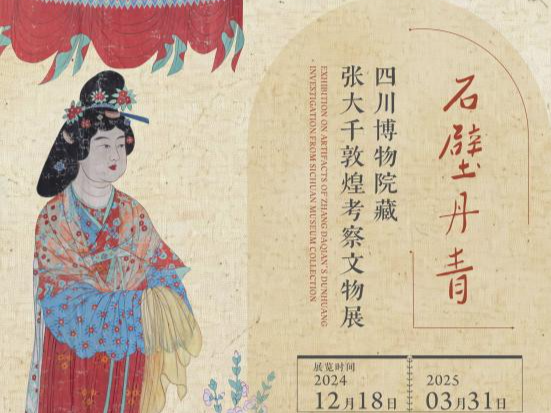 石壁丹青
四川博物院藏
张大千敦煌考察文物展
EXHIBITION ON ARTIFACTS OF ZHANG DAQIAN'S DUNHUANG
INVESTIGATION FROM SICHUAN MUSEUM COLLECTION
展览时间
2024
12月18日
2025
03月31日